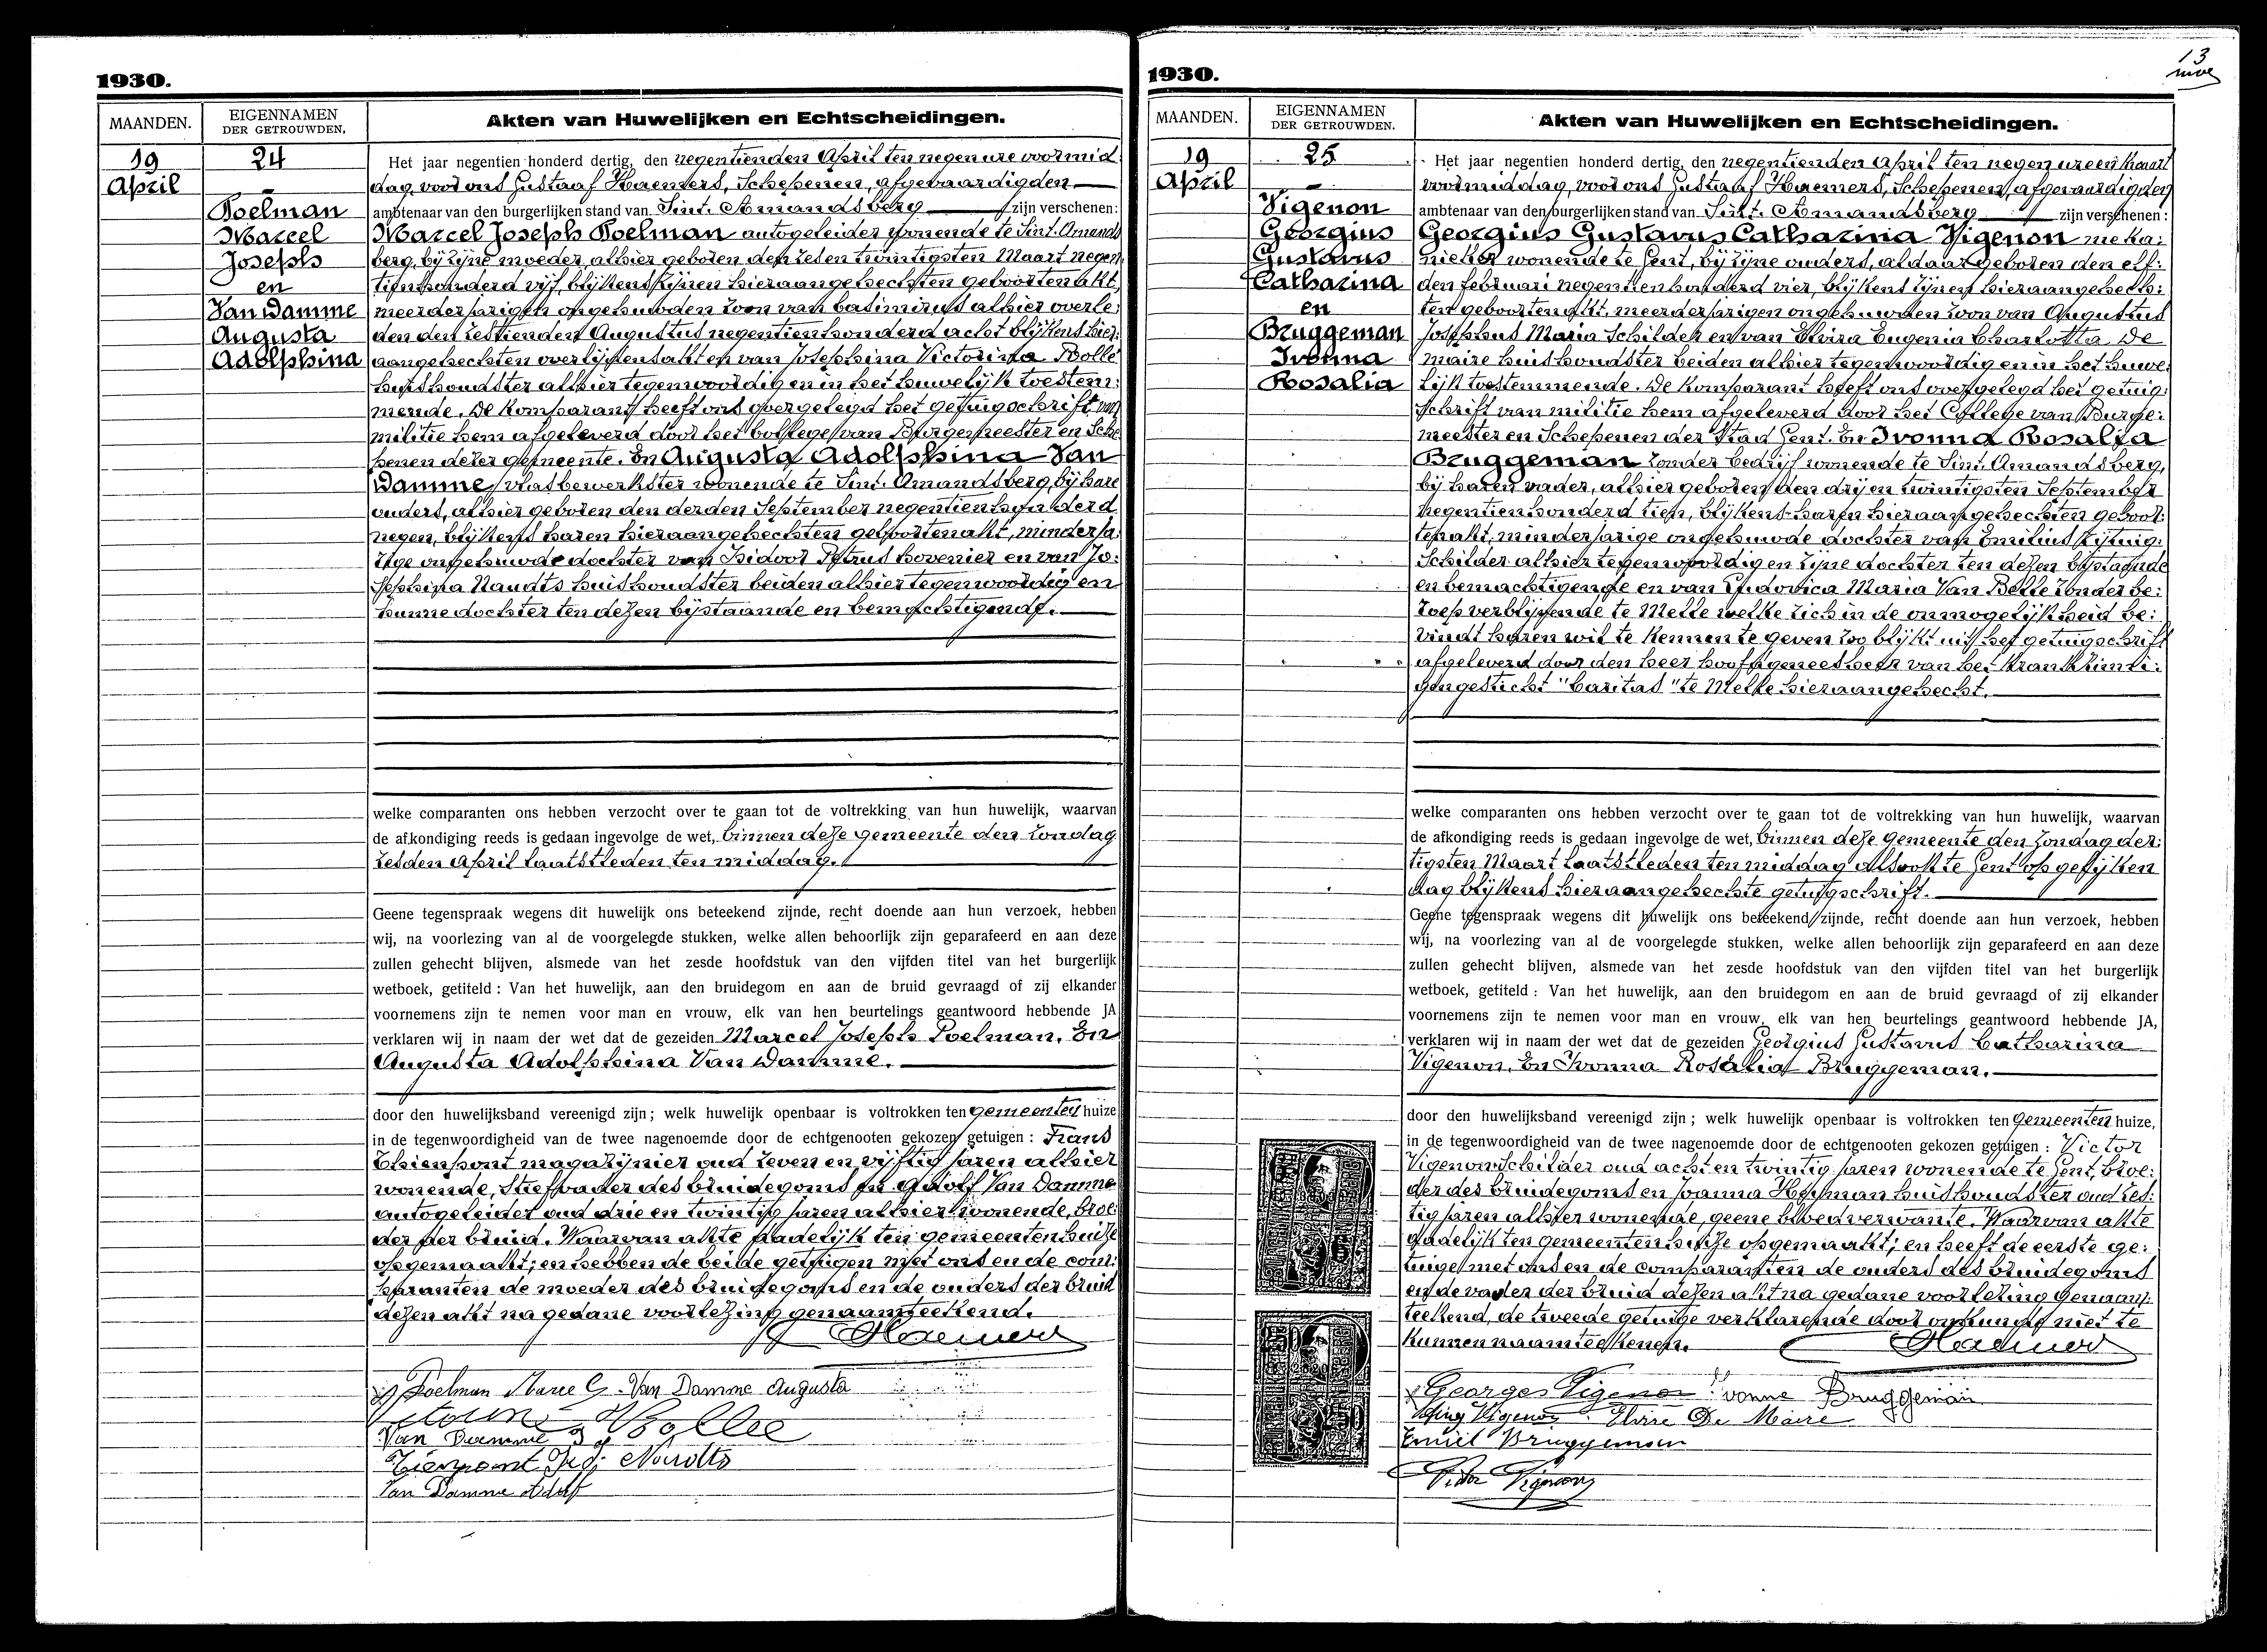 1930.
MAANDEN.
EIGENNAMEN
DER GETROUWDEN.
Akten van Huwelijken en Echtscheidingen.
19
April
24
Poelman
Marcel
Joseph
en
Van Damme
Augusta
Adolphina
Het jaar negentien honderd dertig, den negentienden April ten negen ure voormid:
dag, voor ons Gustaaf Haemers, Schepenen, afgevaardigden
ambtenaar van den burgerlijken stand van Sint. Amandsberg zijn verschenen:
Marcel Joseph Poelman autogeleider wonende te Sint. Amands
berg, bij zijne moeder, alhier geboren den zeden twintigsten Maart negen
tienhonderd vijf, blijkens zijnen hieraangehechten geboortenakt,
meerderjarigen ongehuwden zoon van Casimirus alhier overle:
den den zestienden Augustus negentienhonderd acht blijkens hier:
aangehechten overlijdensakt en van Josephina Victorina Bolle
huishoudster alhier tegenwoordig en in het huwelijk toestem:
mende. De komparant heeft ons overgelegd het getuigschrift van
militie hem afgeleverd door het Collegie van Burgemeester en Sche
penen dezer gemeente. En Augusta Adolphina Van
Damme, vlasbewerkster wonende te Sint. Amandsberg, bij hare
ouders, alhier geboren den derden September negentienhonderd
negen, blijkens haren hieraangehechten geboortenakt, minderja:
rige ongehuwde dochter van Isidoor Petrus hovenier en van Jo:
sephina Naudts huishoudster beiden alhier tegenwoordig en
hunne dochter ten dezen bijstaande en bemachtigende.
welke comparanten ons hebben verzocht over te gaan tot de voltrekking van hun huwelijk, waarvan
de afkondiging reeds is gedaan ingevolge de wet, binnen deze gemeente den zondag
zesden April laatstleden ten middag.
Geene tegenspraak wegens dit huwelijk ons beteekend zijnde, recht doende aan hun verzoek, hebben
wij, na voorlezing van al de voorgelegde stukken, welke allen behoorlijk zijn geparafeerd en aan deze
zullen gehecht blijven, alsmede van het zesde hoofdstuk van den vijfden titel van het burgerlijk
wetboek, getiteld : Van het huwelijk, aan den bruidegom en aan de bruid gevraagd of zij elkander
voornemens zijn te nemen voor man en vrouw, elk van hen beurtelings geantwoord hebbende JA
verklaren wij in naam der wet dat de gezeiden Marcel Joseph Poelman. En
Augusta Adolphina Van Damme.
door den huwelijksband vereenigd zijn ; welk huwelijk openbaar is voltrokken ten gemeenten huize
in de tegenwoordigheid van de twee nagenoemde door de echtgenooten gekozen getuigen : Frans
Thienpont magazijnier oud zeven en vijftig jaren alhier
wonende, stiefvader des bruidegoms en Adolf Van Damme
autogeleider oud drie en twintig jaren alhier wonende, broe:
der der bruid. Waarvan akte dadelijk ten gemeentenhuize
opgemaakt; en hebben de beide getuigen met ons en de com:
paranten de moeder des bruidegoms en de ouders der bruid
dezen akt na gedane voorlezing genaamteekend.
Haemers
Poelman Marcel Van Damme Augusta
Bollee
Van Damme
Tienpont Naudts
Van Damme Adolf
1930.
13
MAANDEN.
EIGENNAMEN
DER GETROUWDEN.
Akten van Huwelijken en Echtscheidingen.
19
April
25
Vigenon
Georgius
Gustavus
Catharina
en
Bruggeman
Ivonna
Rosalia
Het jaar negentien honderd dertig, den negentienden April ten negen ure en kwart
voormiddag, voor ons Gustaaf Haemers, Schepenen, afgevaardigden
ambtenaar van den burgerlijken stand van Sint. Amandsberg zijn verschenen :
Georgius Gustavus Catharina Vigenon meka:
nieker wonende te Gent, bij zijne ouders, aldaar geboren den elf:
den februari negentienhonderd vier, blijkens zijnen hieraangehech:
ten geboortenakt, meerderjarigen ongehuwden zoon van Augustus
Josephus Maria Schilder en van Elvira Eugenia Charlotta De
Maire huishoudster beiden alhier tegenwoordig en in het huwe:
lijk toestemmende. De komparant heeft ons overgelegd het getuig:
schrift van militie hem afgeleverd door het College van Burge:
meester en Schepenen der Stad Gent. En Ivonna Rosalia
Bruggeman zonder bedrijf wonende te Sint. Amandsberg,
bij haren vader, alhier geboren den drij en twintigsten September
negentienhonderd tien, blijkens haren hieraangehechten geboor:
tenakt, minderjarige ongehuwde dochter van Emilius Rijtuig:
Schilder alhier tegenwoordig en zijne dochter ten dezen bijstaande
en bemachtigende en van Ludovica Maria Van Belle zonder be:
roep verblijvende te Melle welke zich in de onmogelijkheid be:
vindt haren wil te kennen te geven zoo blijkt uit het getuigschrift
afgeleverd door den heer hoofdgeneesheer van het krankzinni:
gengesticht "Caritas" te Melle hieraangehecht.
welke comparanten ons hebben verzocht over te gaan tot de voltrekking van hun huwelijk, waarvan
de afkondiging reeds is gedaan ingevolge de wet, binnen deze gemeente den zondag der:
tigsten Maart laatstleden ten middag alsook te Gent op gelijken
dag blijkens hieraangehechte getuigschrift.
Geene tegenspraak wegens dit huwelijk ons beteekend zijnde, recht doende aan hun verzoek, hebben
wij, na voorlezing van al de voorgelegde stukken, welke allen behoorlijk zijn geparafeerd en aan deze
zullen gehecht blijven, alsmede van het zesde hoofdstuk van den vijfden titel van het burgerlijk
wetboek, getiteld : Van het huwelijk, aan den bruidegom en aan de bruid gevraagd of zij elkander
voornemens zijn te nemen voor man en vrouw, elk van hen beurtelings geantwoord hebbende JA,
verklaren wij in naam der wet dat de gezeiden Georgius Gustavus Catharina
Vigenon. En Ivonna Rosalia Bruggeman.
door den huwelijksband vereenigd zijn ; welk huwelijk openbaar is voltrokken ten gemeenten huize,
in de tegenwoordigheid van de twee nagenoemde door de echtgenooten gekozen getuigen : Victor
Vigenon Schilder oud acht en twintig jaren wonende te Gent, broe:
der des bruidegoms en Joanna Heyman huishoudster oud zes:
tig jaren alhier wonende, geene bloedverwante. Waarvan akte
dadelijk ten gemeentenhuize opgemaakt; en heeft de eerste ge:
tuige met ons en de comparanten de ouders des bruidegoms
en de vader der bruid dezen akt na gedane voorlezing genaam:
teekend, de tweede getuige verklarende door onkunde niet te
kunnen naamteekenen.
Haemers
Georges Vigenon Ivonne Bruggeman
Vigenon Elvire De Maire
Emiel Bruggeman
Victor Vigenon